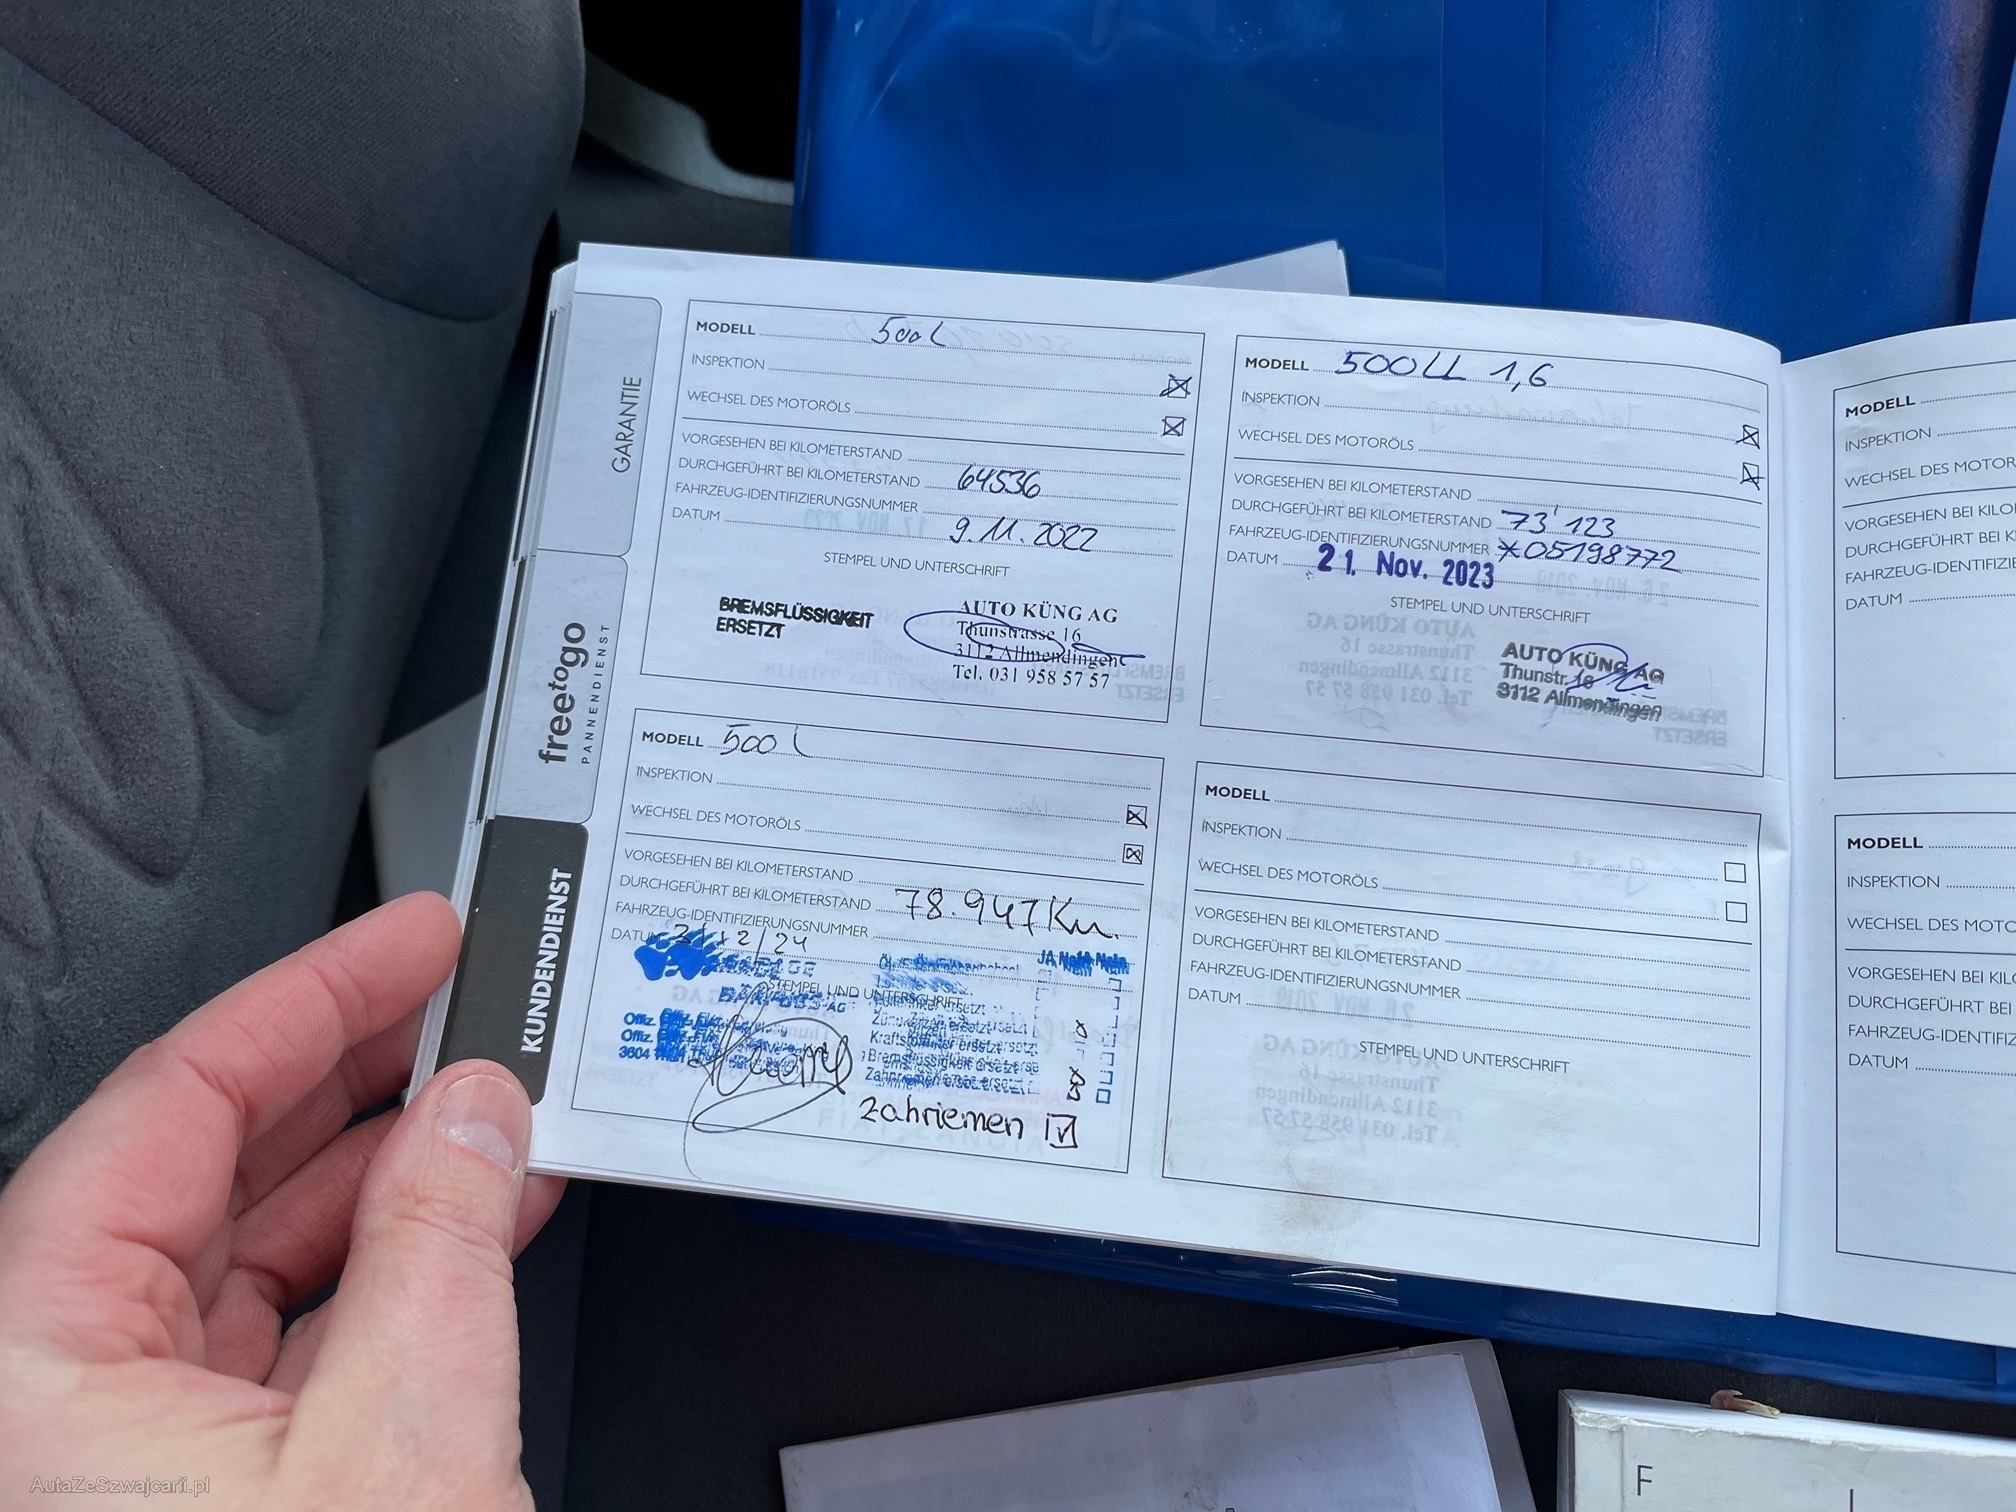 GARANTIE
freetogo
PANNENDIENST
KUNDENDIENST
MODELL 500L
INSPEKTION
WECHSEL DES MOTORÖLS
VORGESEHEN BEI KILOMETERSTAND
DURCHGEFÜHRT BEI KILOMETERSTAND 64536
FAHRZEUG-IDENTIFIZIERUNGSNUMMER
DATUM 9.11.2022
STEMPEL UND UNTERSCHRIFT
BREMSFLÜSSIGKEIT
ERSETZT
AUTO KÜNG AG
Thunstrasse 16
3112 Allmendingen
Tel. 031 958 57 57
MODELL 500LL 1,6
INSPEKTION
WECHSEL DES MOTORÖLS
VORGESEHEN BEI KILOMETERSTAND
DURCHGEFÜHRT BEI KILOMETERSTAND 73'123
FAHRZEUG-IDENTIFIZIERUNGSNUMMER *05198772
DATUM 21. Nov. 2023
STEMPEL UND UNTERSCHRIFT
AUTO KÜNG AG
Thunstr. 16
3112 Allmendingen
MODELL 500L
INSPEKTION
WECHSEL DES MOTORÖLS
VORGESEHEN BEI KILOMETERSTAND
DURCHGEFÜHRT BEI KILOMETERSTAND 78.947 Km.
FAHRZEUG-IDENTIFIZIERUNGSNUMMER
DATUM
STEMPEL UND UNTERSCHRIFT
JA Nein
Zündkerzen ersetzt
Kraftstofffilter ersetzt
Bremsflüssigkeit ersetzt
Zahnriemen ersetzt
Offiz.
Offiz.
3604 Thun
Zahriemen
MODELL
INSPEKTION
WECHSEL DES MOTORÖLS
VORGESEHEN BEI KILOMETERSTAND
DURCHGEFÜHRT BEI KILOMETERSTAND
FAHRZEUG-IDENTIFIZIERUNGSNUMMER
DATUM
STEMPEL UND UNTERSCHRIFT
MODELL
INSPEKTION
WECHSEL DES MOTOR
VORGESEHEN BEI KILO
DURCHGEFÜHRT BEI
FAHRZEUG-IDENTIFIZI
DATUM
MODELL
INSPEKTION
WECHSEL DES MOTO
VORGESEHEN BEI KILO
DURCHGEFÜHRT BEI
FAHRZEUG-IDENTIFIZ
DATUM
F I
AutaZeSzwajcarii.pl